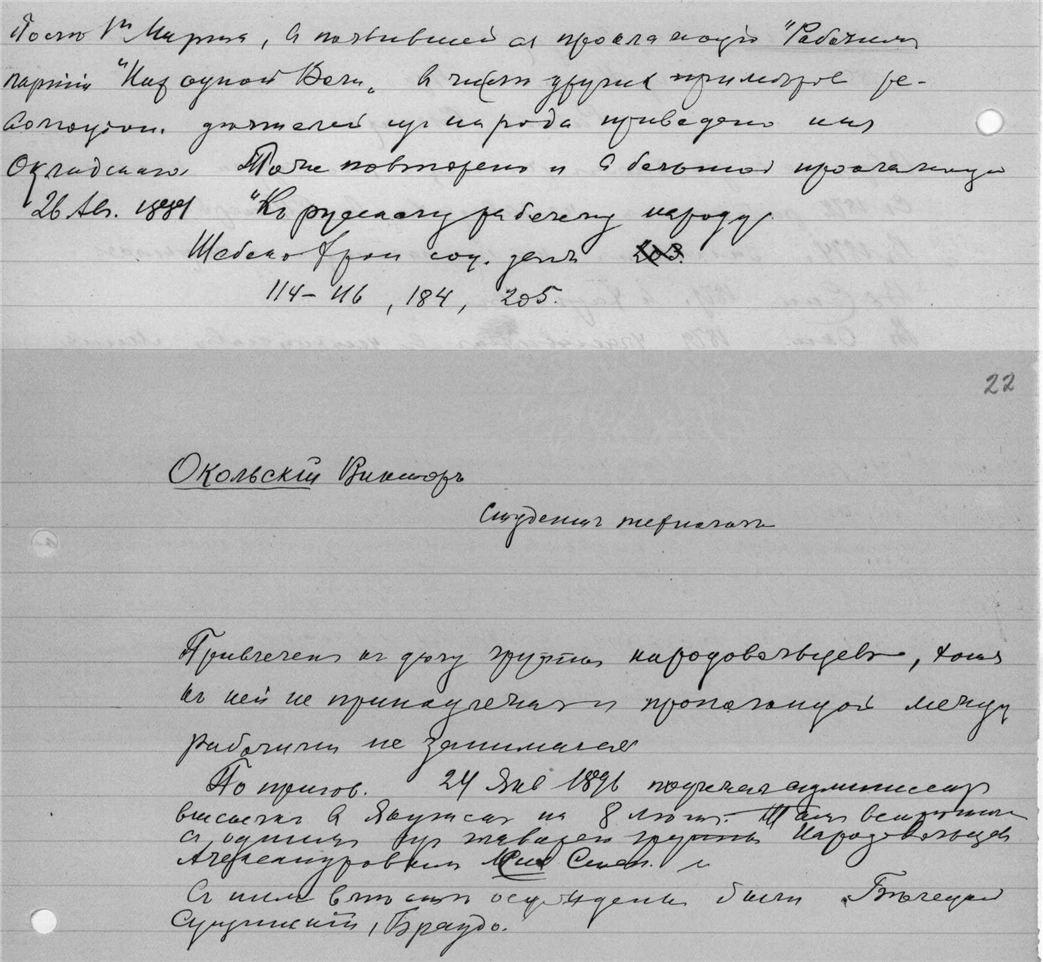 После 1го Марта, в появившейся прокламации "Рабочим
партии "Народной Воли" в числе других примеров ре-
волюцион. деятелей из народа приведено имя
Окладского. Тоже повторено и в большой прокламации
26 Ав. 1881 "Къ русскому рабочему народу".
Шебеко Хрон соц. движ 203.
114-116, 184, 205.
22
Окольскій Викторъ
Студентъ технологъ
Привлеченъ къ делу группы народовольцевъ, хотя
къ ней не принадлежалъ и пропагандой между
рабочими не занимался
По пригов. 24 Янв 1896 подлежал административ
высылке в Якутск на 8 летъ.
с однимъ изъ группы Народовольцев
Александровым Мих Степ.
С ним вместе осуждены были Белецкий
Сущинский, Браудо.